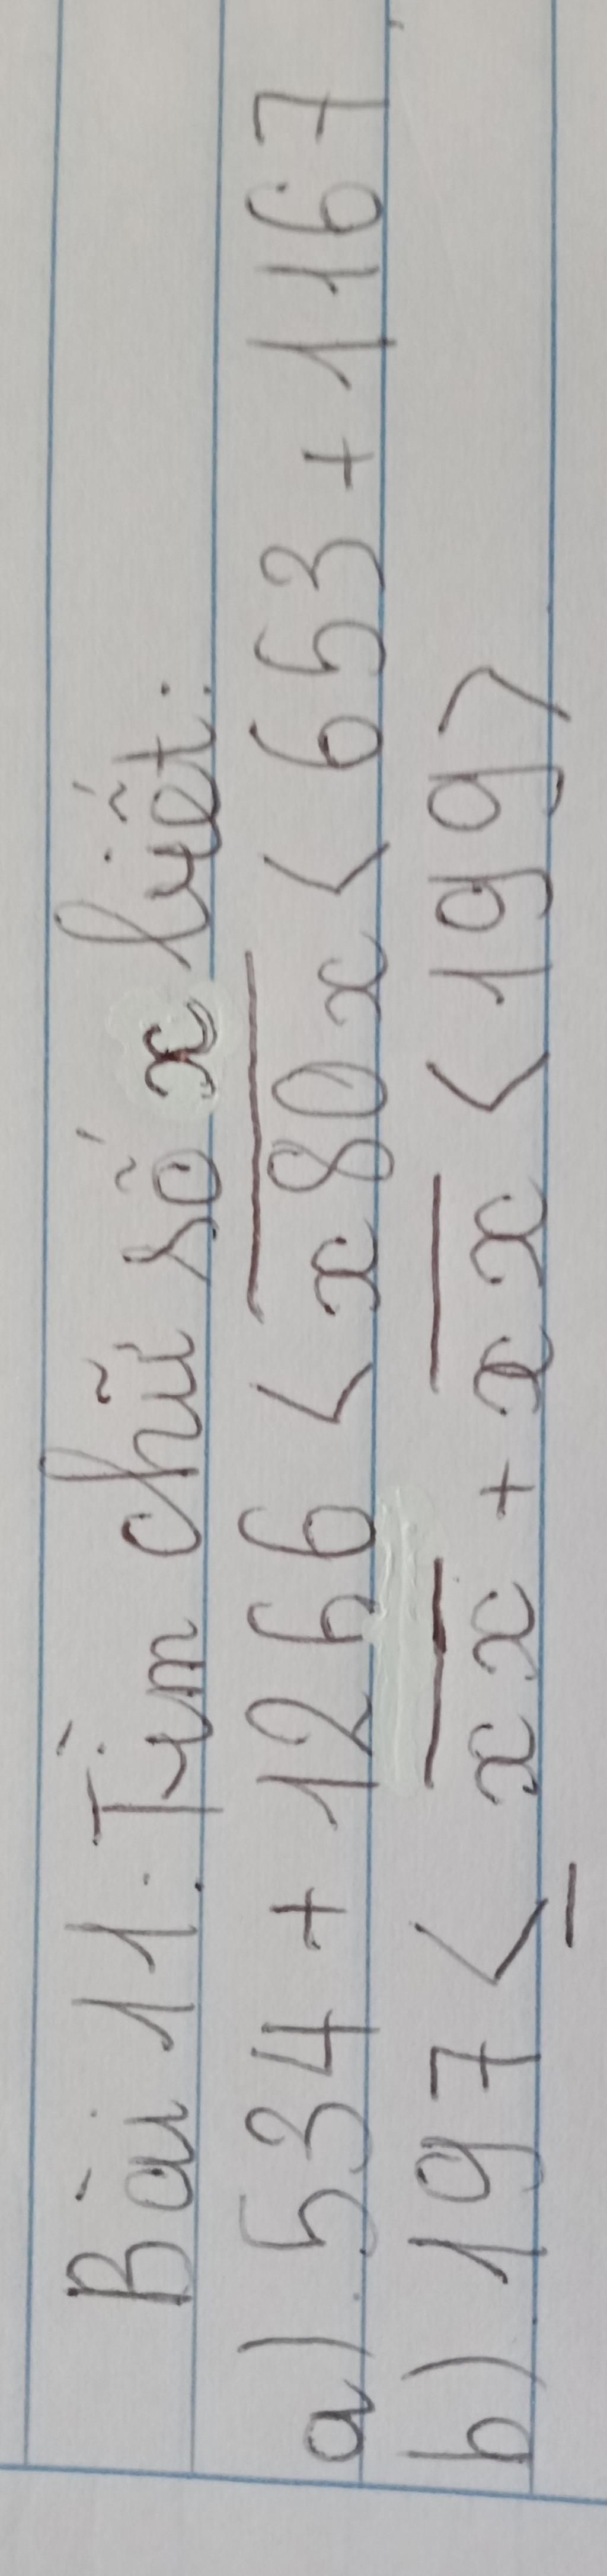 Bài 11. Tìm chữ số x biết:
a) 534 + 1266 < x80x < 653 + 1167
b) 197 < xx + xx < 199